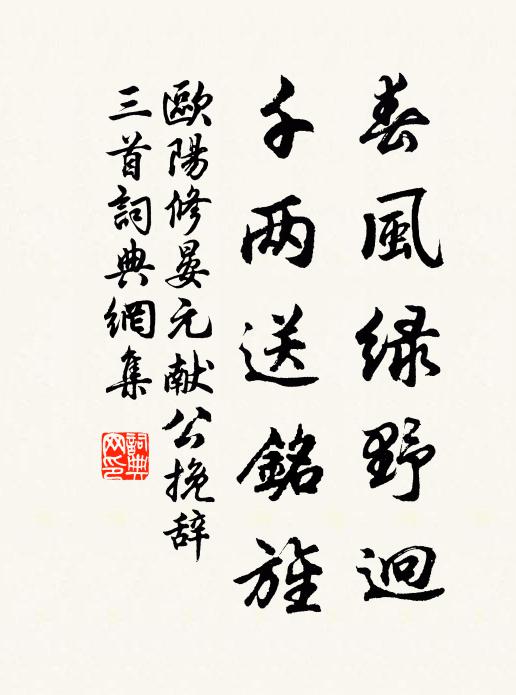 春風緑野迥
千两送銘旌
歐陽修晏元献公挽辞
三首詞典網集
詞典网印